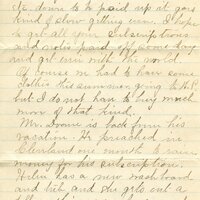 is done to be paid up at gos
kind of slow getting even. I hope
to get all your subscriptions
and notes paid off some day
and get even with the world.
Of course we had to have some
clothes this summer going to K.P.
but I do not have to buy much
more of that kind.
Mr. Doane is back from his
vacation. He preached in
Cleveland one month to raise
money for his subscription.
Helen has a new washboard
and tub and she gets out a